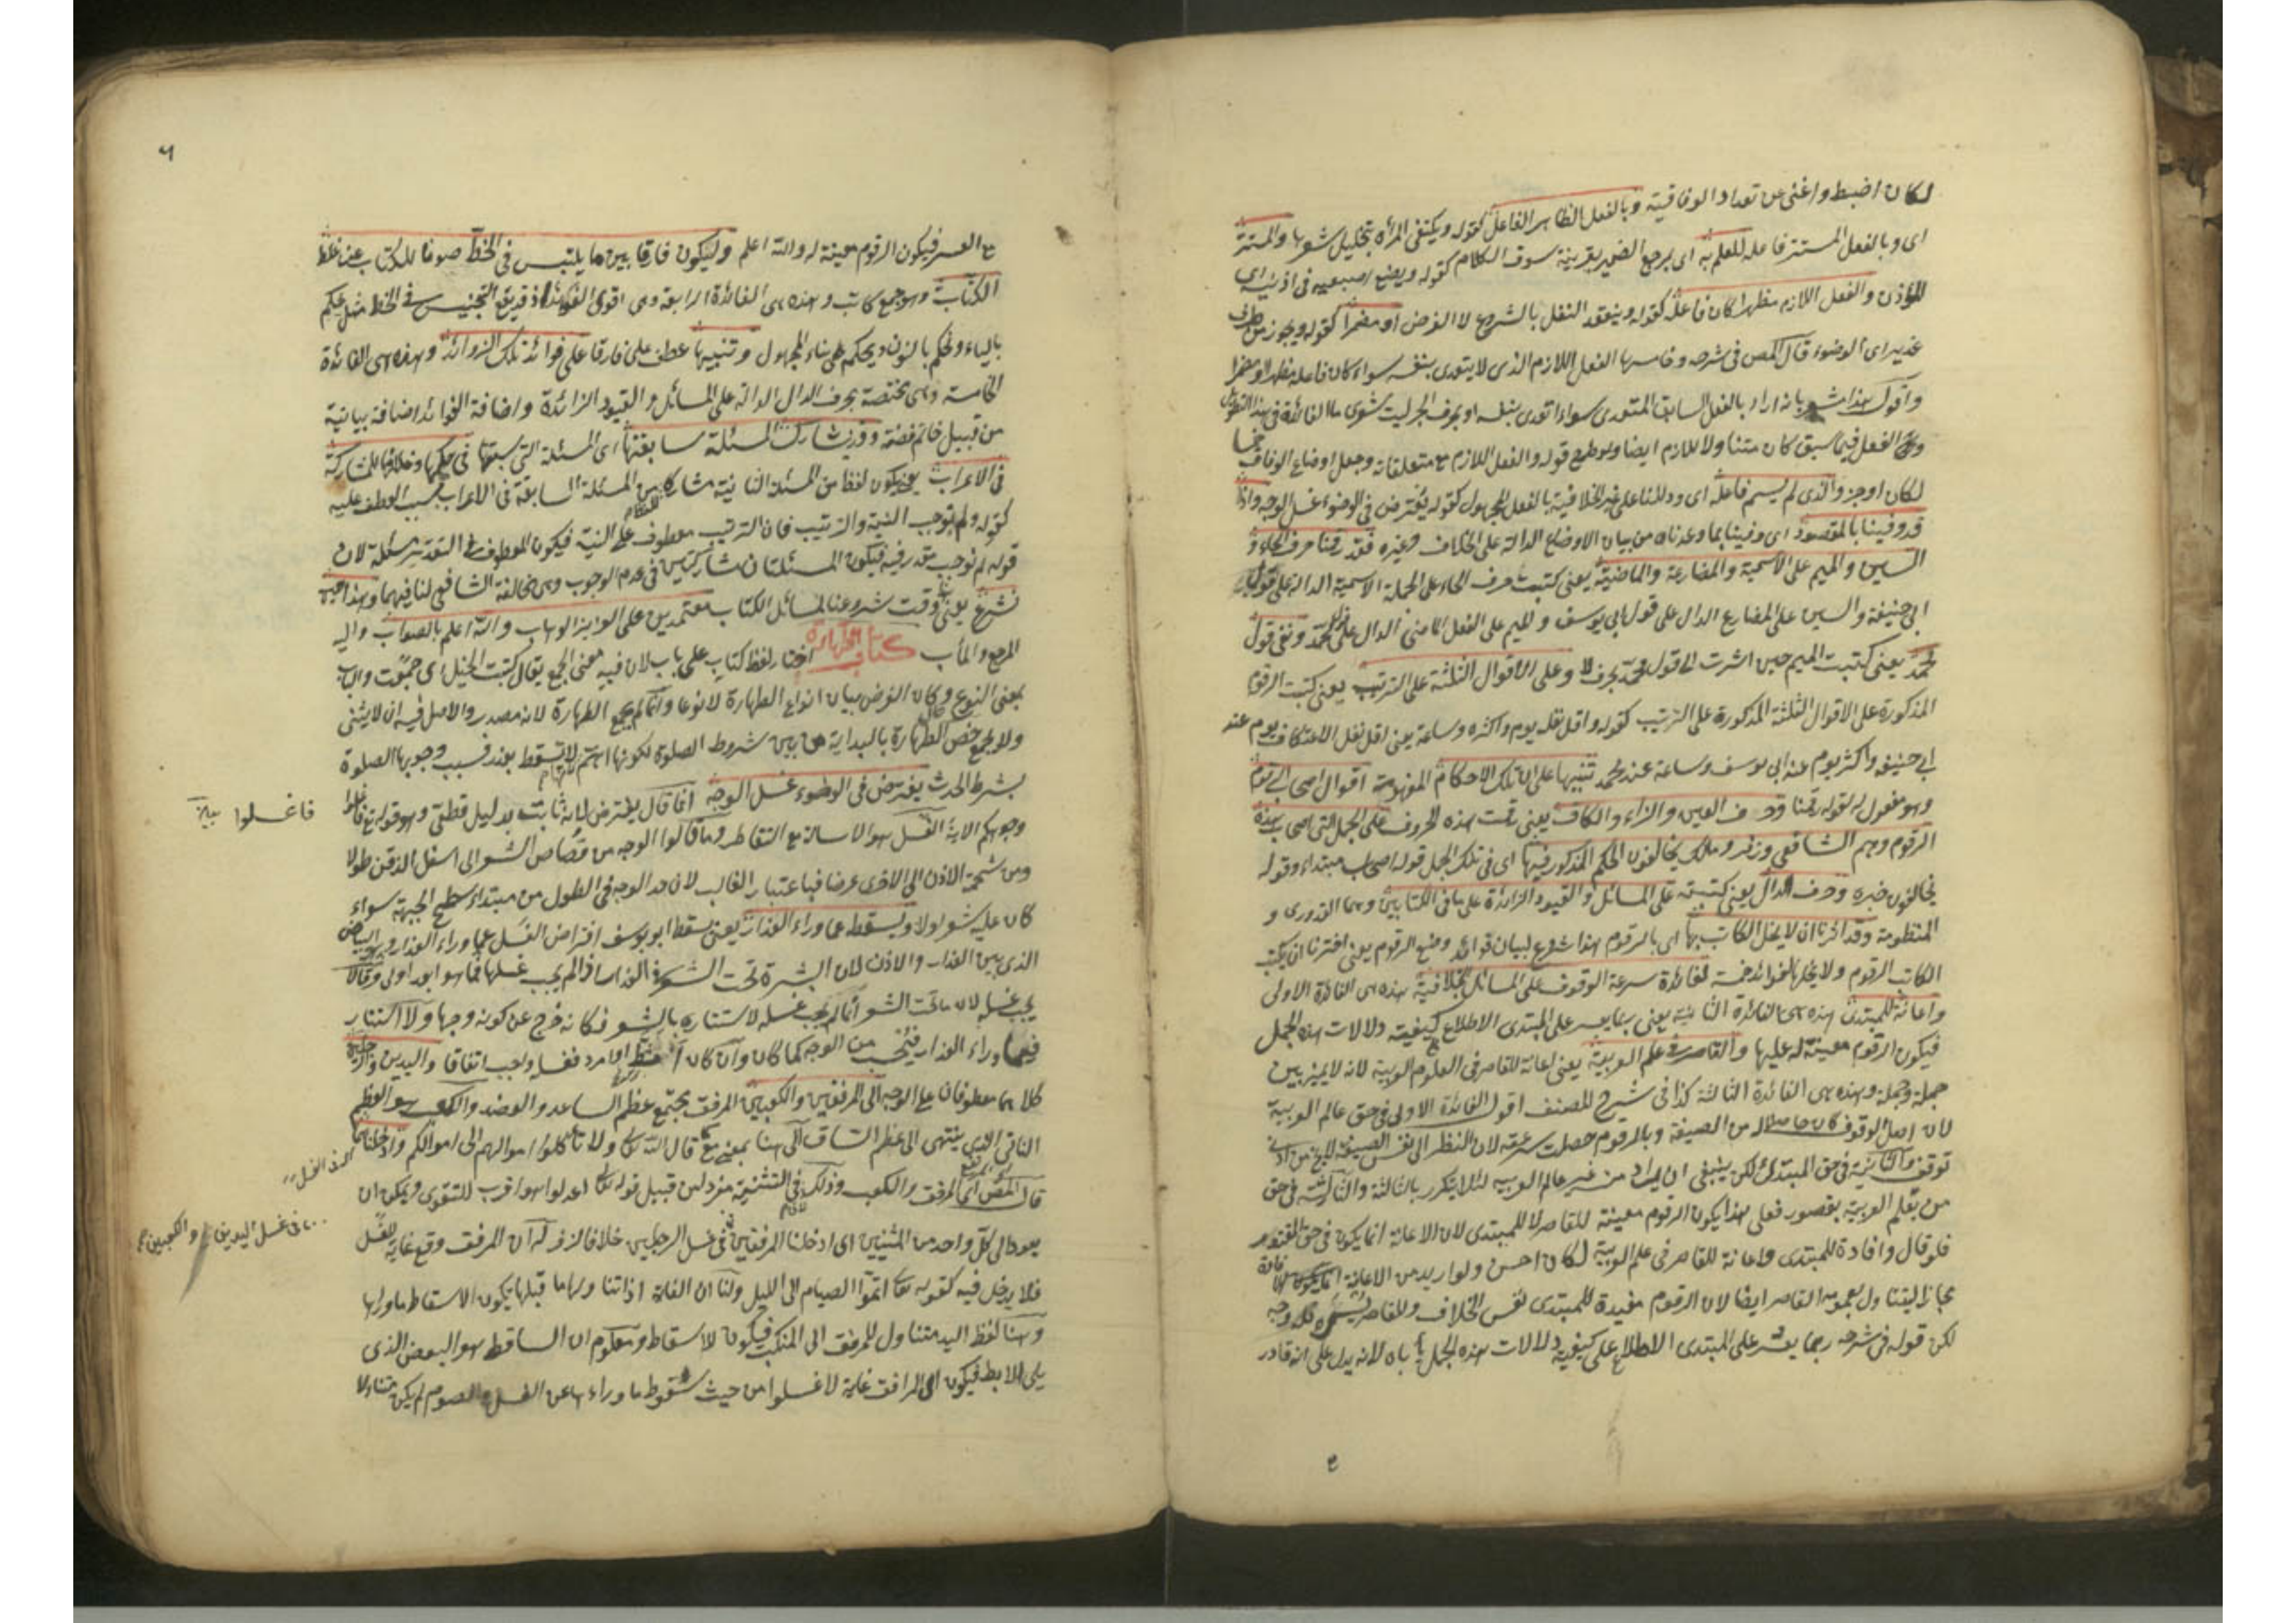 لكان اضبط واغنى عن تعداد الوفاقية وبالفعل الظاهر الفاعل كقوله ويكتفى المرأة بتخليل شعرها والمستتر
اى وبالفعل المستتر فاعله للعلم به اى يرجع الضمير بقرينة سوق الكلام كقوله ويضع اصبعيه فى اذنيه اى
المؤذن والفعل اللازم مظهرا كان فاعله كقوله وينعقد النفل بالشروع لا الفرض او مضمرا كقوله ويجوز من طرف
غدير اى الوضوء قال المص فى شرحه وخامسها الفعل اللازم الذى لا يتعدى بنفسه سواء كان فاعله مظهرا او مضمرا
واقول هذا بانه اراد بالفعل السابق المتعدى سواء تعدى بنفسه او بحرف الجر ليت شعرى ما الفائدة فى هذا
الفعل فيما سبق كان متنا ولا للازم ايضا ولو طرح قوله والفعل اللازم مع متعلقاته وجعل اوضاع الوفاق
لكان اوجز والذى لم يسم فاعله اى ودللنا على غير الخلافية بالفعل المجهول كقوله يفترض فى الوضوء غسل الوجه واذا
قد وفينا بالمقصود اى وفينا بما وعدناه من بيان الاوضاع الدالة على الخلاف وغيره فقد رقمنا حرف الحاء و
السين والميم على الاسمية والمضارعة والماضية يعنى كتبت حرف الحاء على الجملة الاسمية الدالة على قول
ابى حنيفة والسين على المضارع الدال على قول ابى يوسف والميم على الفعل الماضى الدال على قول محمد ونفى قول
محمد يعنى كتبت الميم حين اشرت الى قول محمد بحرف لا وعلى الاقوال الثلثة على الترتيب يعنى كتبت الرقوم
المذكورة على الاقوال الثلثة المذكورة على الترتيب كقوله واقل نفله يوم واكثره وساعة يعنى اقل نفل الاعتكاف يوم عند
ابى حنيفة واكثر يوم عند ابى يوسف وساعة عند محمد تنبيها على ان تلك الاحكام المفهومة اقوال اصحاب الرقوم
وهو مفعول له لقوله رقمنا وحرف العين والزاء والكاف يعنى رقمت هذه الحروف على الجمل التى اصحاب هذه
الرقوم وهم الشافعى وزفر ومالك يخالفون الحكم المذكور فيها اى فى تلك الجمل قوله اصحاب مبتداء وقوله
يخالفون خبره وحرف الدال يعنى كتبته على المسائل والقيود الزائدة على ما فى الكتابين وهما القدورى و
المنظومة وقد اثرنا ان لا يخل الكاتب بها اى بالرقوم هذا شروع لبيان فوائد وضع الرقوم يعنى اخترنا ان يكتب
الكاتب الرقوم ولا يخل بها لفوائد خمسة لفائدة سرعة الوقوف على المسائل الخلافية هذه هى الفائدة الاولى
واعانة للمبتدئ هذه هى الفائدة الثانية يعنى ربما يعسر على المبتدى الاطلاع كيفية دلالات هذه الجمل
فيكون الرقوم معينة له عليها والقاصر فى علم العربية يعنى اعانة للقاصر فى العلوم العربية لانه لا يميز بين
جملة وجملة وهذه هى الفائدة الثالثة كذا فى شرح المصنف اقول الفائدة الاولى فى حق عالم العربية
لان اصل الوقوف كان حاصلا له من الصيغة وبالرقوم حصلت سرعته لان النظر الى نفس الصيغة لا يخ من ادنى
توقف والثانية فى حق المبتدئ لكن ينبغى ان يراد من غير عالم العربية لئلا يتكرر بالثالثة والثالثة فى حق
من يتعلم العربية بقصور فعلى هذا يكون الرقوم معينة للقاصر لا للمبتدى لان الاعانة انما يكون فى حق المقتدر
فلو قال وافادة للمبتدى واعانة للقاصر فى علم العربية لكان احسن ولو اريد من الاعانة
مجازا ليتناول بعمومه القاصر ايضا لان الرقوم مفيدة للمبتدى نفس الخلاف وللقاصر فله وجه
لكن قوله فى شرحه ربما يعسر على المبتدى الاطلاع على كيفية دلالات هذه الجمل يأباه لانه يدل على انه قادر
٦
مع العسر فيكون الرقوم معينة له والله اعلم وليكون فارقا بين ما يلتبس فى الخط صونا للكتاب عن غلط
الكتاب وهو جمع كاتب وهذه هى الفائدة الرابعة وهى اقوى الفوائد اذ قد يقع التجنيس فى الخط مثل يحكم
بالياء ونحكم بالنون ويحكم على بناء المجهول وتنبيها عطف على فارقا على فوائد تلك الزوائد وهذه هى الفائدة
الخامسة وهى مختصة بحرف الدال الدالة على المسائل والقيود الزائدة واضافة الفوائد اضافة بيانية
من قبيل خاتم فضة وقد تشارك المسئلة سابقتها اى المسئلة التى سبقتها فى حكمها وخلافها للمشاركة
فى الاعراب يعنى يكون لفظ من المسئلة الثانية مشاركا من المسئلة السابقة فى الاعراب بسبب العطف عليه
كقوله ولم نوجب النية والترتيب فان الترتيب معطوف على النية فيكون المعطوف فى التقدير مسئلة لان
قوله لم نوجب مقدر فيه فيكون المسئلتان متشاركتين فى عدم الوجوب وفى مخالفة الشافعى لنا فيهما وهذا حين
نشرع يعنى وقت شروعنا لمسائل الكتاب معتمدين على الوهاب والله اعلم بالصواب واليه
المرجع والمأب كتاب الطهارة اختار لفظ كتاب على باب لان فيه معنى الجمع يقال كتبت الخيل اى جمعت والباب
بمعنى النوع وكان الغرض بيان انواع الطهارة لا نوعا وانما لم يجمع الطهارة لانه مصدر والاصل فيه ان لا يثنى
ولا يجمع خص الطهارة بالبداية من بين شروط الصلوة لكونها اهم لا تسقط بعذر فسبب وجوبها الصلوة
بشرط الحدث يفترض فى الوضوء غسل الوجه انما قال يفترض لانه ثابت بدليل قطعى وهو قوله تع فاغسلوا
وجوهكم الاية الغسل هو الاسالة مع التقاطر وما قالوا الوجه من قصاص الشعر الى اسفل الذقن طولا
ومن شحمة الاذن الى الاخرى عرضا فباعتبار الغالب لان حد الوجه فى الطول من مبتداء سطح الجبهة سواء
كان عليه شعر اولا ويسقط عما وراء العذار يعنى يسقط ابو يوسف افتراض الغسل عما وراء العذار وهو البياض
الذى بين العذار والاذن لان البشرة تحت الشعر فى العذار اذا لم يجب غسلها فما هو ابعد اولى وقالا
يجب غسله لان ما تحت الشعر انما لم يجب غسله لاستتاره بالشعر فكانه خرج عن كونه وجها ولا استتار
فيما وراء العذار فيجب من الوجه كما كان وان كان امرد فغسله واجب اتفاقا واليدين والرجلين
كلاهما معطوفان على الوجه الى المرفقين والكعبين المرفق مجتمع عظم الساعد والعضد والكعب هو العظم
الناتى الذى ينتهى الى عظم الساق الى هنا بمعنى مع كما قال الله تعالى ولا تأكلوا اموالهم الى اموالكم وادخلناهما
قال المص اى المرفق والكعب وذلك فى التثنية مفرد من قبيل قوله تعالى اعدلوا هو اقرب للتقوى ويمكن ان
يعود الى كل واحد من المثنيين اى ادخلنا المرفقين فى غسل الرجلين خلافا لزفر له ان المرفق وقع غاية للغسل
فلا يدخل فيه كقوله تعا اتموا الصيام الى الليل ولنا ان الغاية اذا تناولها ما قبلها يكون لاسقاط ما وراءها
وهنا لفظ اليد متناول للمرفق الى المنكب فيكون للاسقاط ومعلوم ان الساقط هو البعض الذى
يلى الابط فيكون الى المرافق غاية لاغسلوا من حيث سقوط ما وراءها عن الغسل الصوم لم يكن متناولا
فاغسلوا بيان
فى الغسل
فى غسل اليدين والكعبين